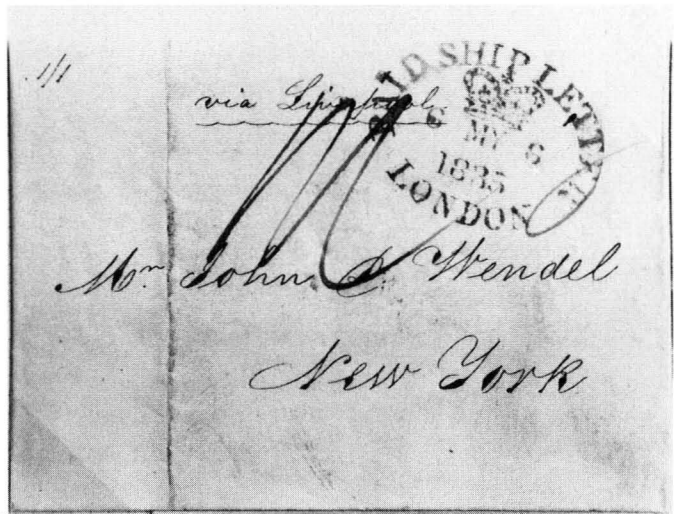 1/1
via Liverpool
PAID SHIP LETTER
6 MY 6
1835
LONDON
Mr. John D. Wendel
New York